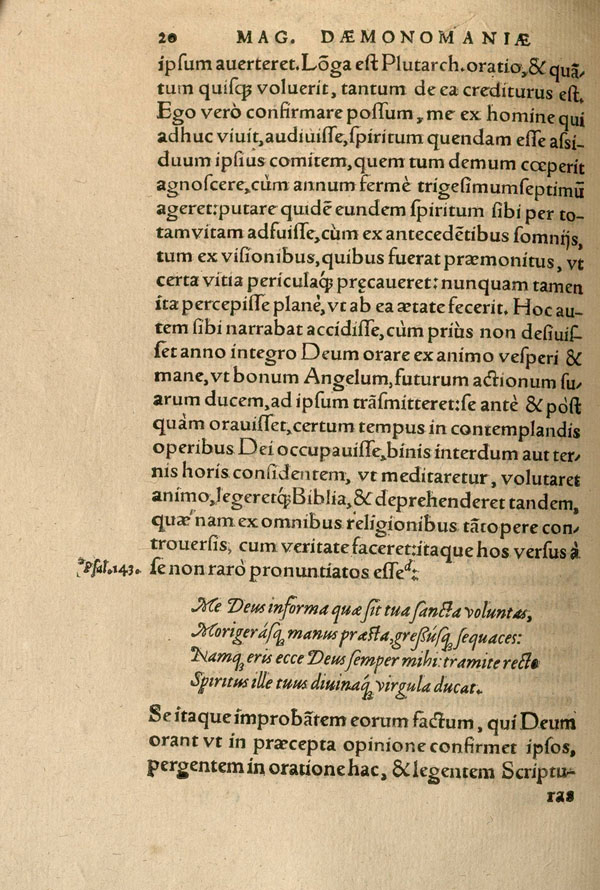 20 MAG. DÆMONOMANIÆ
ipſum auerteret. Lõga eſt Plutarch. oratio, & quã-
tum quiſq; voluerit, tantum de ea crediturus eſt.
Ego verò confirmare poſſum, me ex homine qui
adhuc viuit, audiuiſſe, ſpiritum quendam eſſe aſsi-
duum ipſius comitem, quem tum demum cœperit
agnoſcere, cùm annum fermè trigeſimumſeptimũ
ageret: putare quidẽ eundem ſpiritum ſibi per to-
tam vitam adfuiſſe, cùm ex antecedẽtibus ſomnijs,
tum ex viſionibus, quibus fuerat præmonitus, vt
certa vitia periculaq́; pręcaueret: nunquam tamen
ita percepiſſe planè, vt ab ea ætate fecerit. Hoc au-
tem ſibi narrabat accidiſſe, cùm priùs non deſiuiſ-
ſet anno integro Deum orare ex animo veſperi &
mane, vt bonum Angelum, futurum actionum ſu-
arum ducem, ad ipſum trãſmitteret: ſe antè & pòſt
quàm orauiſſet, certum tempus in contemplandis
operibus Dei occupauiſſe, binis interdum aut ter-
nis horis conſidentem, vt meditaretur, volutaret
animo, legeretq́; Biblia, & deprehenderet tandem,
quæ nam ex omnibus religionibus tãtopere con-
trouerſis, cum veritate faceret: itaque hos verſus à
ᵈPſal. 143. ſe non rarò pronuntiatos eſſeᵈ:
Me Deus informa quæ ſit tua ſancta voluntas,
Morigerásq; manus præſta, greſsúsq; ſequaces:
Namq; eris ecce Deus ſemper mihi: tramite recto
Spiritus ille tuus diuinaq́; virgula ducat.
Se itaque improbãtem eorum factum, qui Deum
orant vt in præcepta opinione confirmet ipſos,
pergentem in oratione hac, & legentem Scriptu-
ras